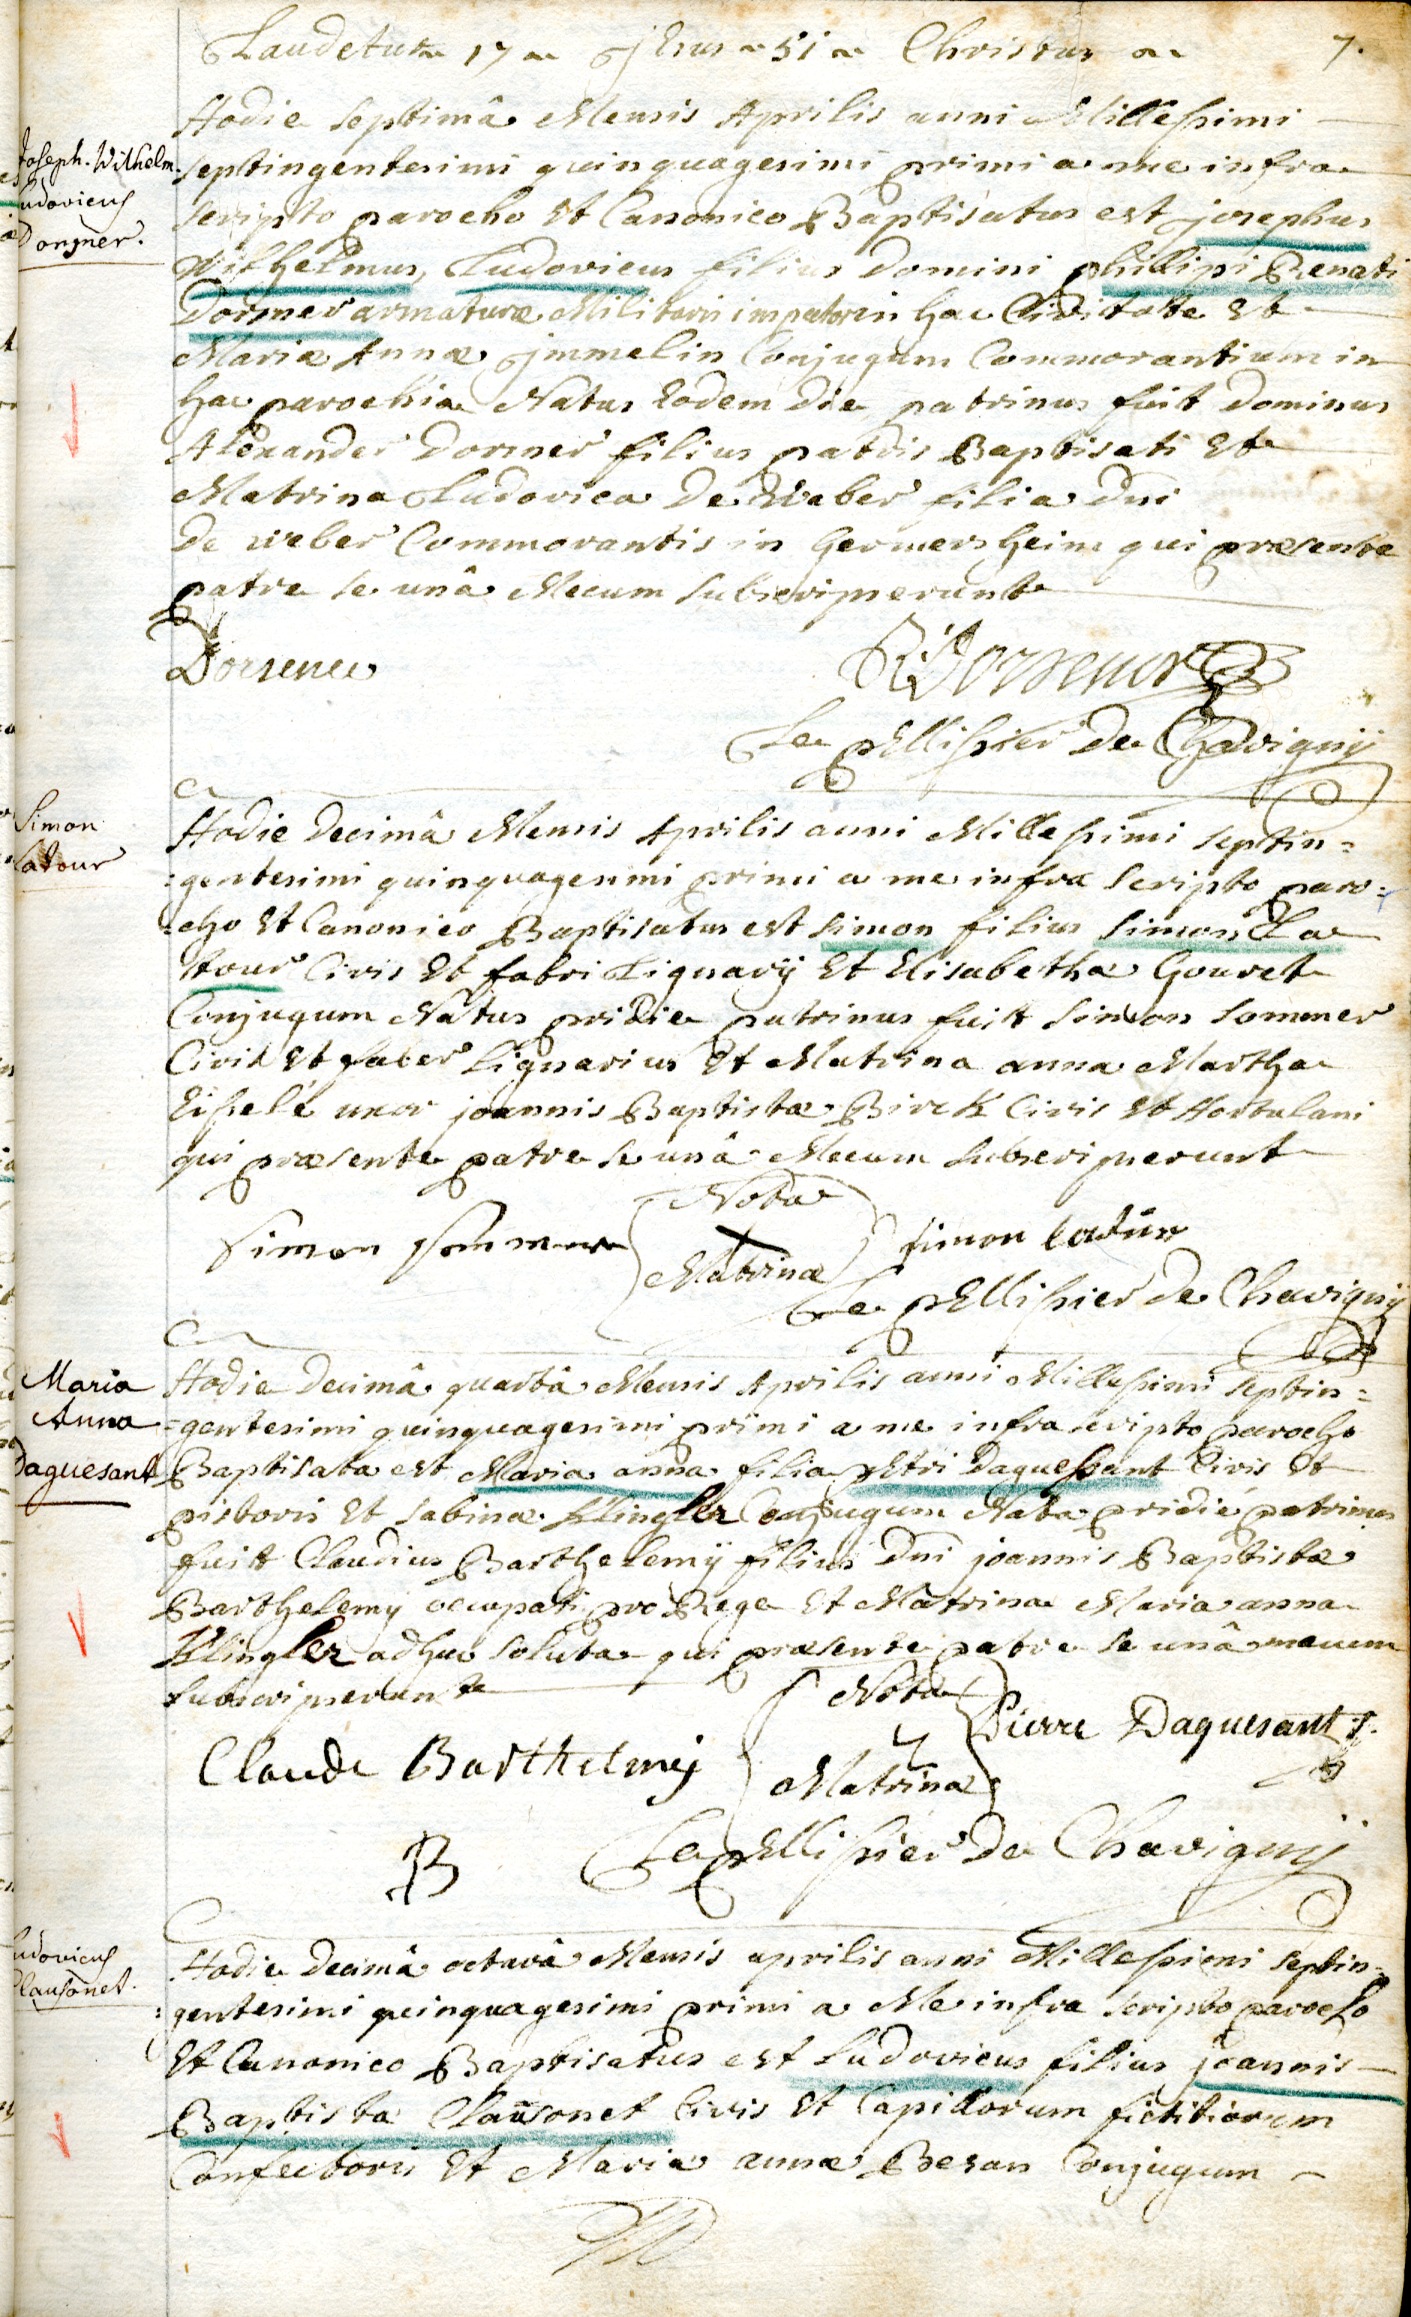 Laudetur 17 Jesus 51 Christus
7.
Hodie septimâ Mensis Aprilis anni Millessimi
Joseph. Wilhelm.
septingentesimi quinquagesimi primi a me infra
Ludovicus
scripto parocho Et Canonico Baptisatus est josephus
Dorsner.
Wilhelmus, Ludovicus filius Domini philippi Renati
Dorsner armaturæ Militaris inspectoris in hac Civitate Et
Mariæ Annæ jmmelin Conjugum Commorantium in
hac parochia Natus Eodem die patrinus fuit Dominus
Alexander Dorsner filius patris Baptisati Et
Matrina Ludovica De Weber filia Dni
De weber Commorantis in Germersheim qui præsente
patre se unâ Mecum subscripserunt
Dorsener
R: Dorsener
Le pEllissier De Chavignÿ
Simon
Latour
Hodie Decimâ Mensis Aprilis anni Millessimi septin=
=gentesimi quinquagesimi primi a me infra scripto paro=
=cho Et Canonico Baptisatus est simon filius simon La
tour Civis Et fabri Lignarÿ Et Elisabethæ Gouret
Conjugum Natus pridie patrinus fuit simon sommer
Civis Et faber Lignarius Et Matrina anna Martha
Eissele uxor joannis Baptistæ Birck Civis Et Hortulani
qui præsente patre se unâ Mecum subscripserunt
Nota
simon sommer
X
simon latur
Matrinæ
Le pEllissier De Chavignÿ
Maria
Anna
Daguesant
Hodie Decimâ quartâ Mensis Aprilis anni Millessimi septin=
=gentesimi quinquagesimi primi a me infra scripto parocho
Baptisata est Maria anna filia pEtri Daguessant Civis Et
pistoris Et sabinæ Klingler Conjugum Nata pridie patrinus
fuit Claudius Barthelemÿ filius Dni joannis Baptistæ
Barthelemy occupati pro Rege Et Matrina Maria anna
Klingler adhuc soluta qui præsente patre se unâ mecum
subscripserunt
Nota
Pierre Daguesant
Claude Barthelmÿ
Matrinæ
B
Le pEllissier De Chavignÿ
Ludovicus
Clausonet.
Hodie Decimâ octavâ Mensis aprilis anni Millessimi septin=
=gentesimi quinquagesimi primi a Me infra scripto parocho
Et Canonico Baptisatus est Ludovicus filius joannis
Baptista Clausonet Civis Et Capillorum fictitiorum
Confectoris Et Mariæ annæ Besan Conjugum